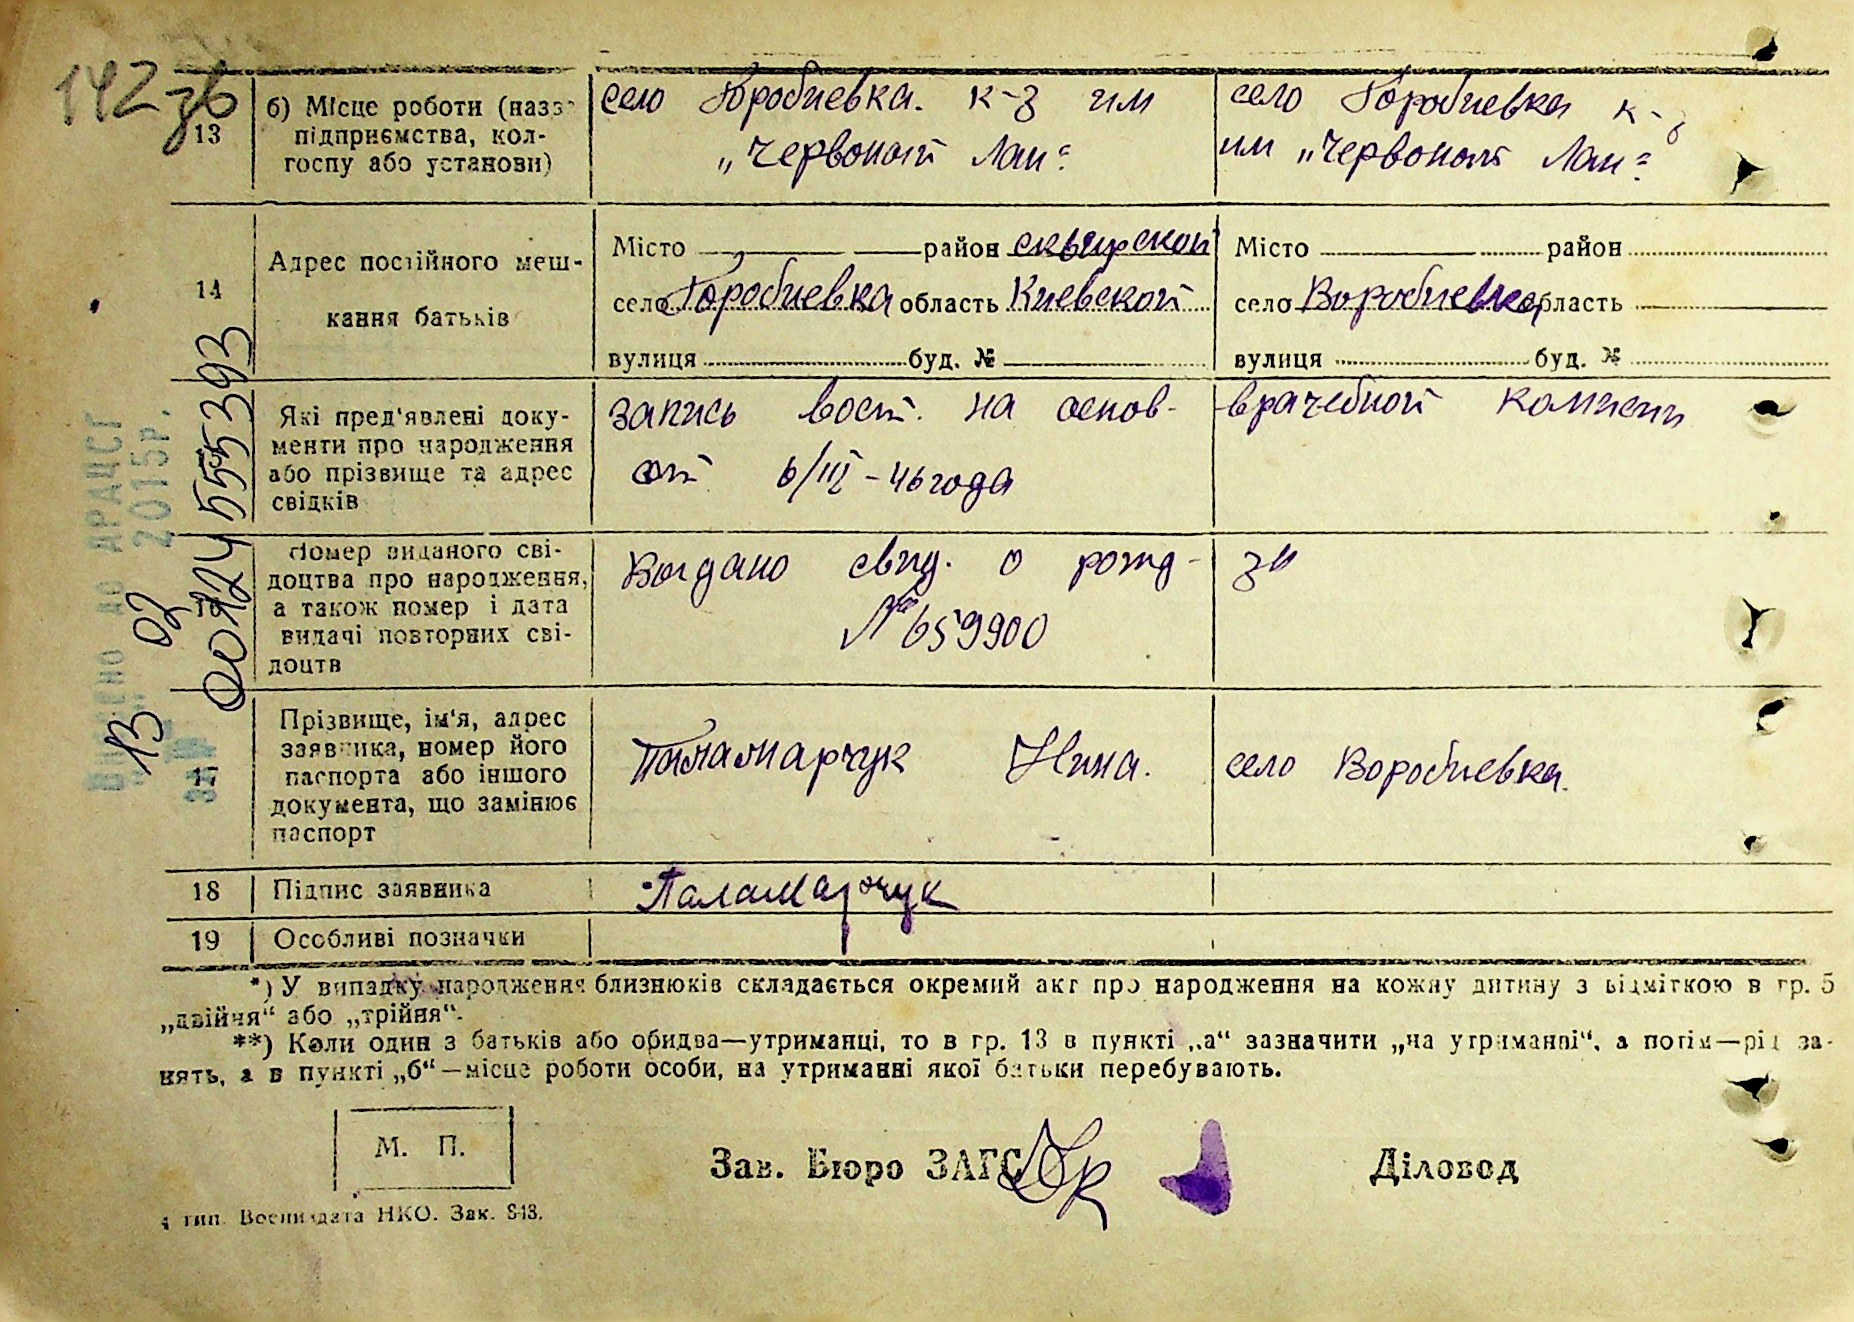 142 зв
13
б) Місце роботи (назва
підприємства, кол-
госпу або установи)
село Горобиевка. к-з им
„Червоный Лан"
село Горобиевка к-з
им „Червоный Лан"
14
Адрес постійного меш-
кання батьків
Місто район сквирской
село Горобиевка область Киевской
вулиця буд. №
Місто район
село Воробиевка область
вулиця буд. №
Які пред'явлені доку-
менти про народження
або прізвище та адрес
свідків
запись вост. на основ-
от 6/III-46 года
врачебной комисии
16
Номер виданого сві-
доцтва про народження,
а також номер і дата
видачі повторних сві-
доцтв
Выдано свид. о рожд-
№ 659900
17
Прізвище, ім'я, адрес
заявника, номер його
паспорта або іншого
документа, що замінює
паспорт
Паламарчук Нина.
село Воробиевка.
18
Підпис заявника
Паламарчук
19
Особливі позначки
*) У випадку народження близнюків складається окремий акт про народження на кожну дитину з відміткою в гр. 5
„двійня" або „трійня".
**) Коли один з батьків або обидва—утриманці, то в гр. 13 в пункті „а" зазначити „на утриманні", а потім—рід за-
нять, а в пункті „б"—місце роботи особи, на утриманні якої батьки перебувають.
М. П.
Зав. Бюро ЗАГС
Діловод
4 тип. Воениздата НКО. Зак. 813.
Внесено до ДРАЦСГ
13 02 2015р.
00124555393